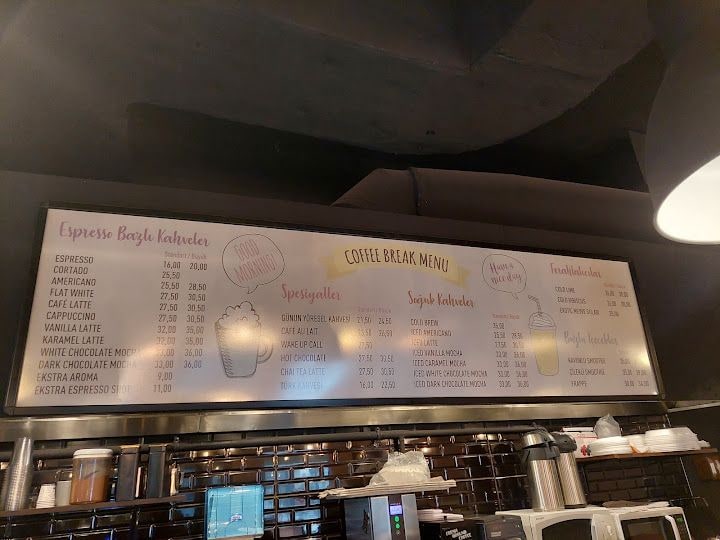 Espresso Bazlı Kahveler
Standart / Büyük
ESPRESSO 16,00 20,00
CORTADO 25,50
AMERICANO 25,50 28,50
FLAT WHITE 27,50 30,50
CAFÉ LATTE 27,50 30,50
CAPPUCCINO 27,50 30,50
VANILLA LATTE 32,00 35,00
KARAMEL LATTE 32,00 35,00
WHITE CHOCOLATE MOCHA 33,00 36,00
DARK CHOCOLATE MOCHA 33,00 36,00
EKSTRA AROMA 9,00
EKSTRA ESPRESSO SHOT 11,00
GOOD
MORNING!
COFFEE BREAK MENU
Spesiyaller
Standart / Büyük
GÜNÜN YÖRESEL KAHVESİ 24,50
CAFÉ AU LAIT 26,50
WAKE UP CALL
HOT CHOCOLATE 27,50 30,50
CHAI TEA LATTE 27,50 30,50
TÜRK KAHVESİ 16,00 22,50
Have a
nice day
Soğuk Kahveler
COLD BREW
ICED AMERICANO
ICED LATTE
ICED VANILLA MOCHA 33,00 36,00
ICED CARAMEL MOCHA 33,00 36,00
ICED WHITE CHOCOLATE MOCHA 33,00 36,00
ICED DARK CHOCOLATE MOCHA 33,00 36,00
Ferahlatıcılar
COLD LIME
COLD HIBISCUS
Buzlu Lezzetler
SMOOTHIE
ÇİLEKLİ SMOOTHIE
FRAPPE